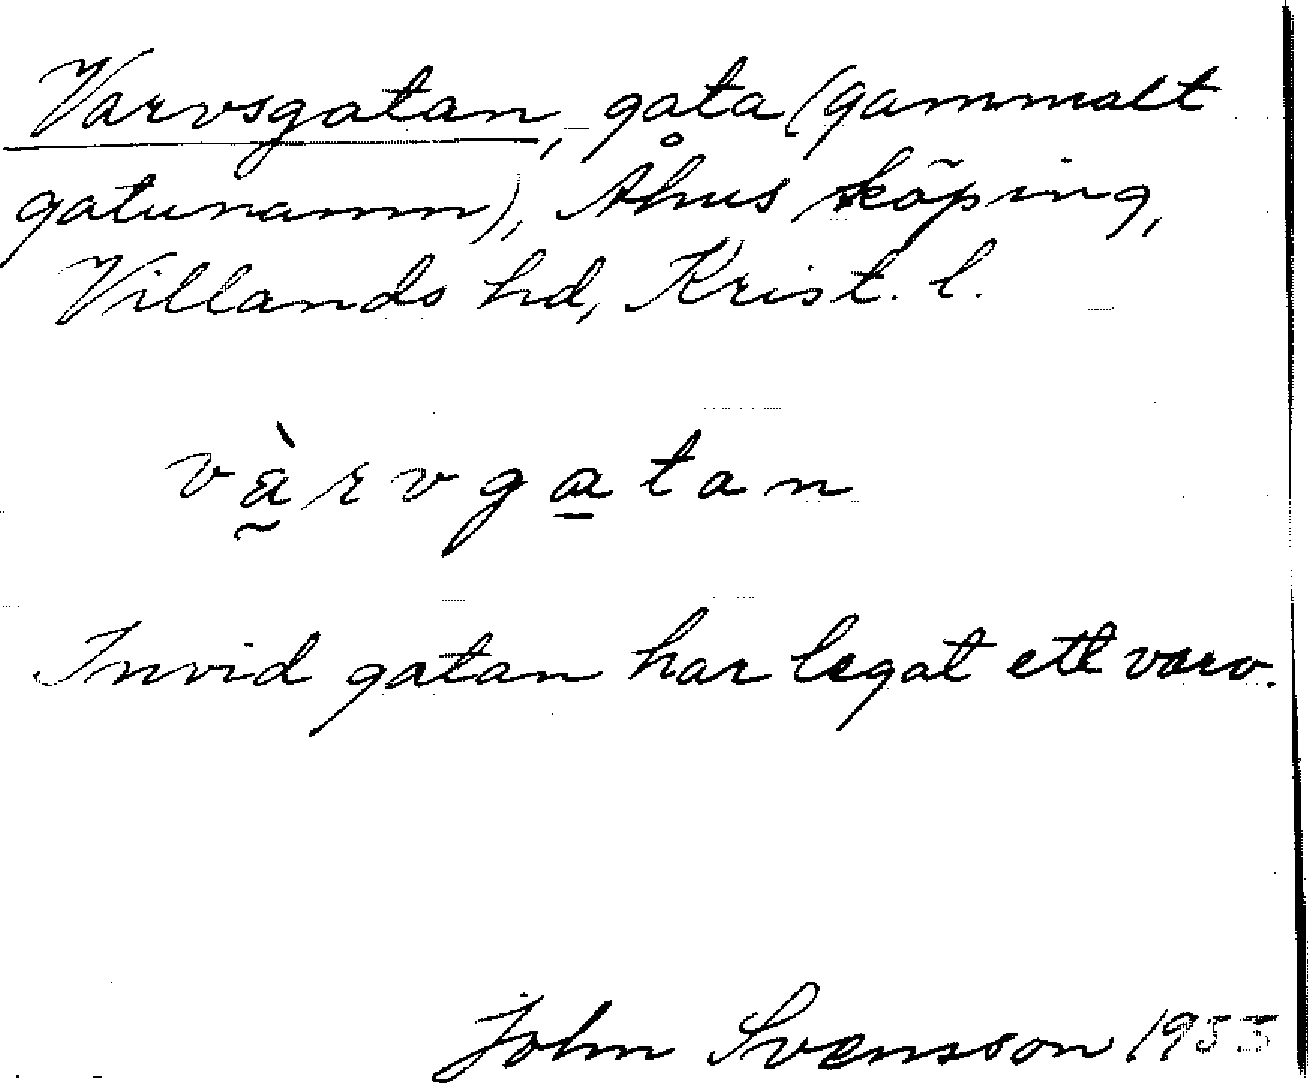 Varvsgatan, gata (gammalt
gatunamn), Åhus köping,
Villands hd, Krist. l.
và̰rvga̲tan
Invid gatan har legat ett varv.
John Svensson 1953